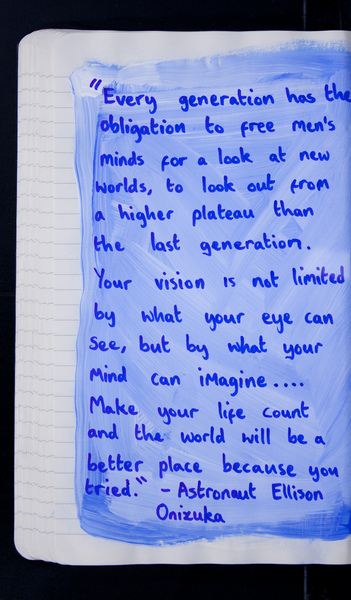 "Every generation has the
obligation to free men's
minds for a look at new
worlds, to look out from
a higher plateau than
the last generation.
Your vision is not limited
by what your eye can
see, but by what your
mind can imagine....
Make your life count
and the world will be a
better place because you
tried." - Astronaut Ellison
Onizuka